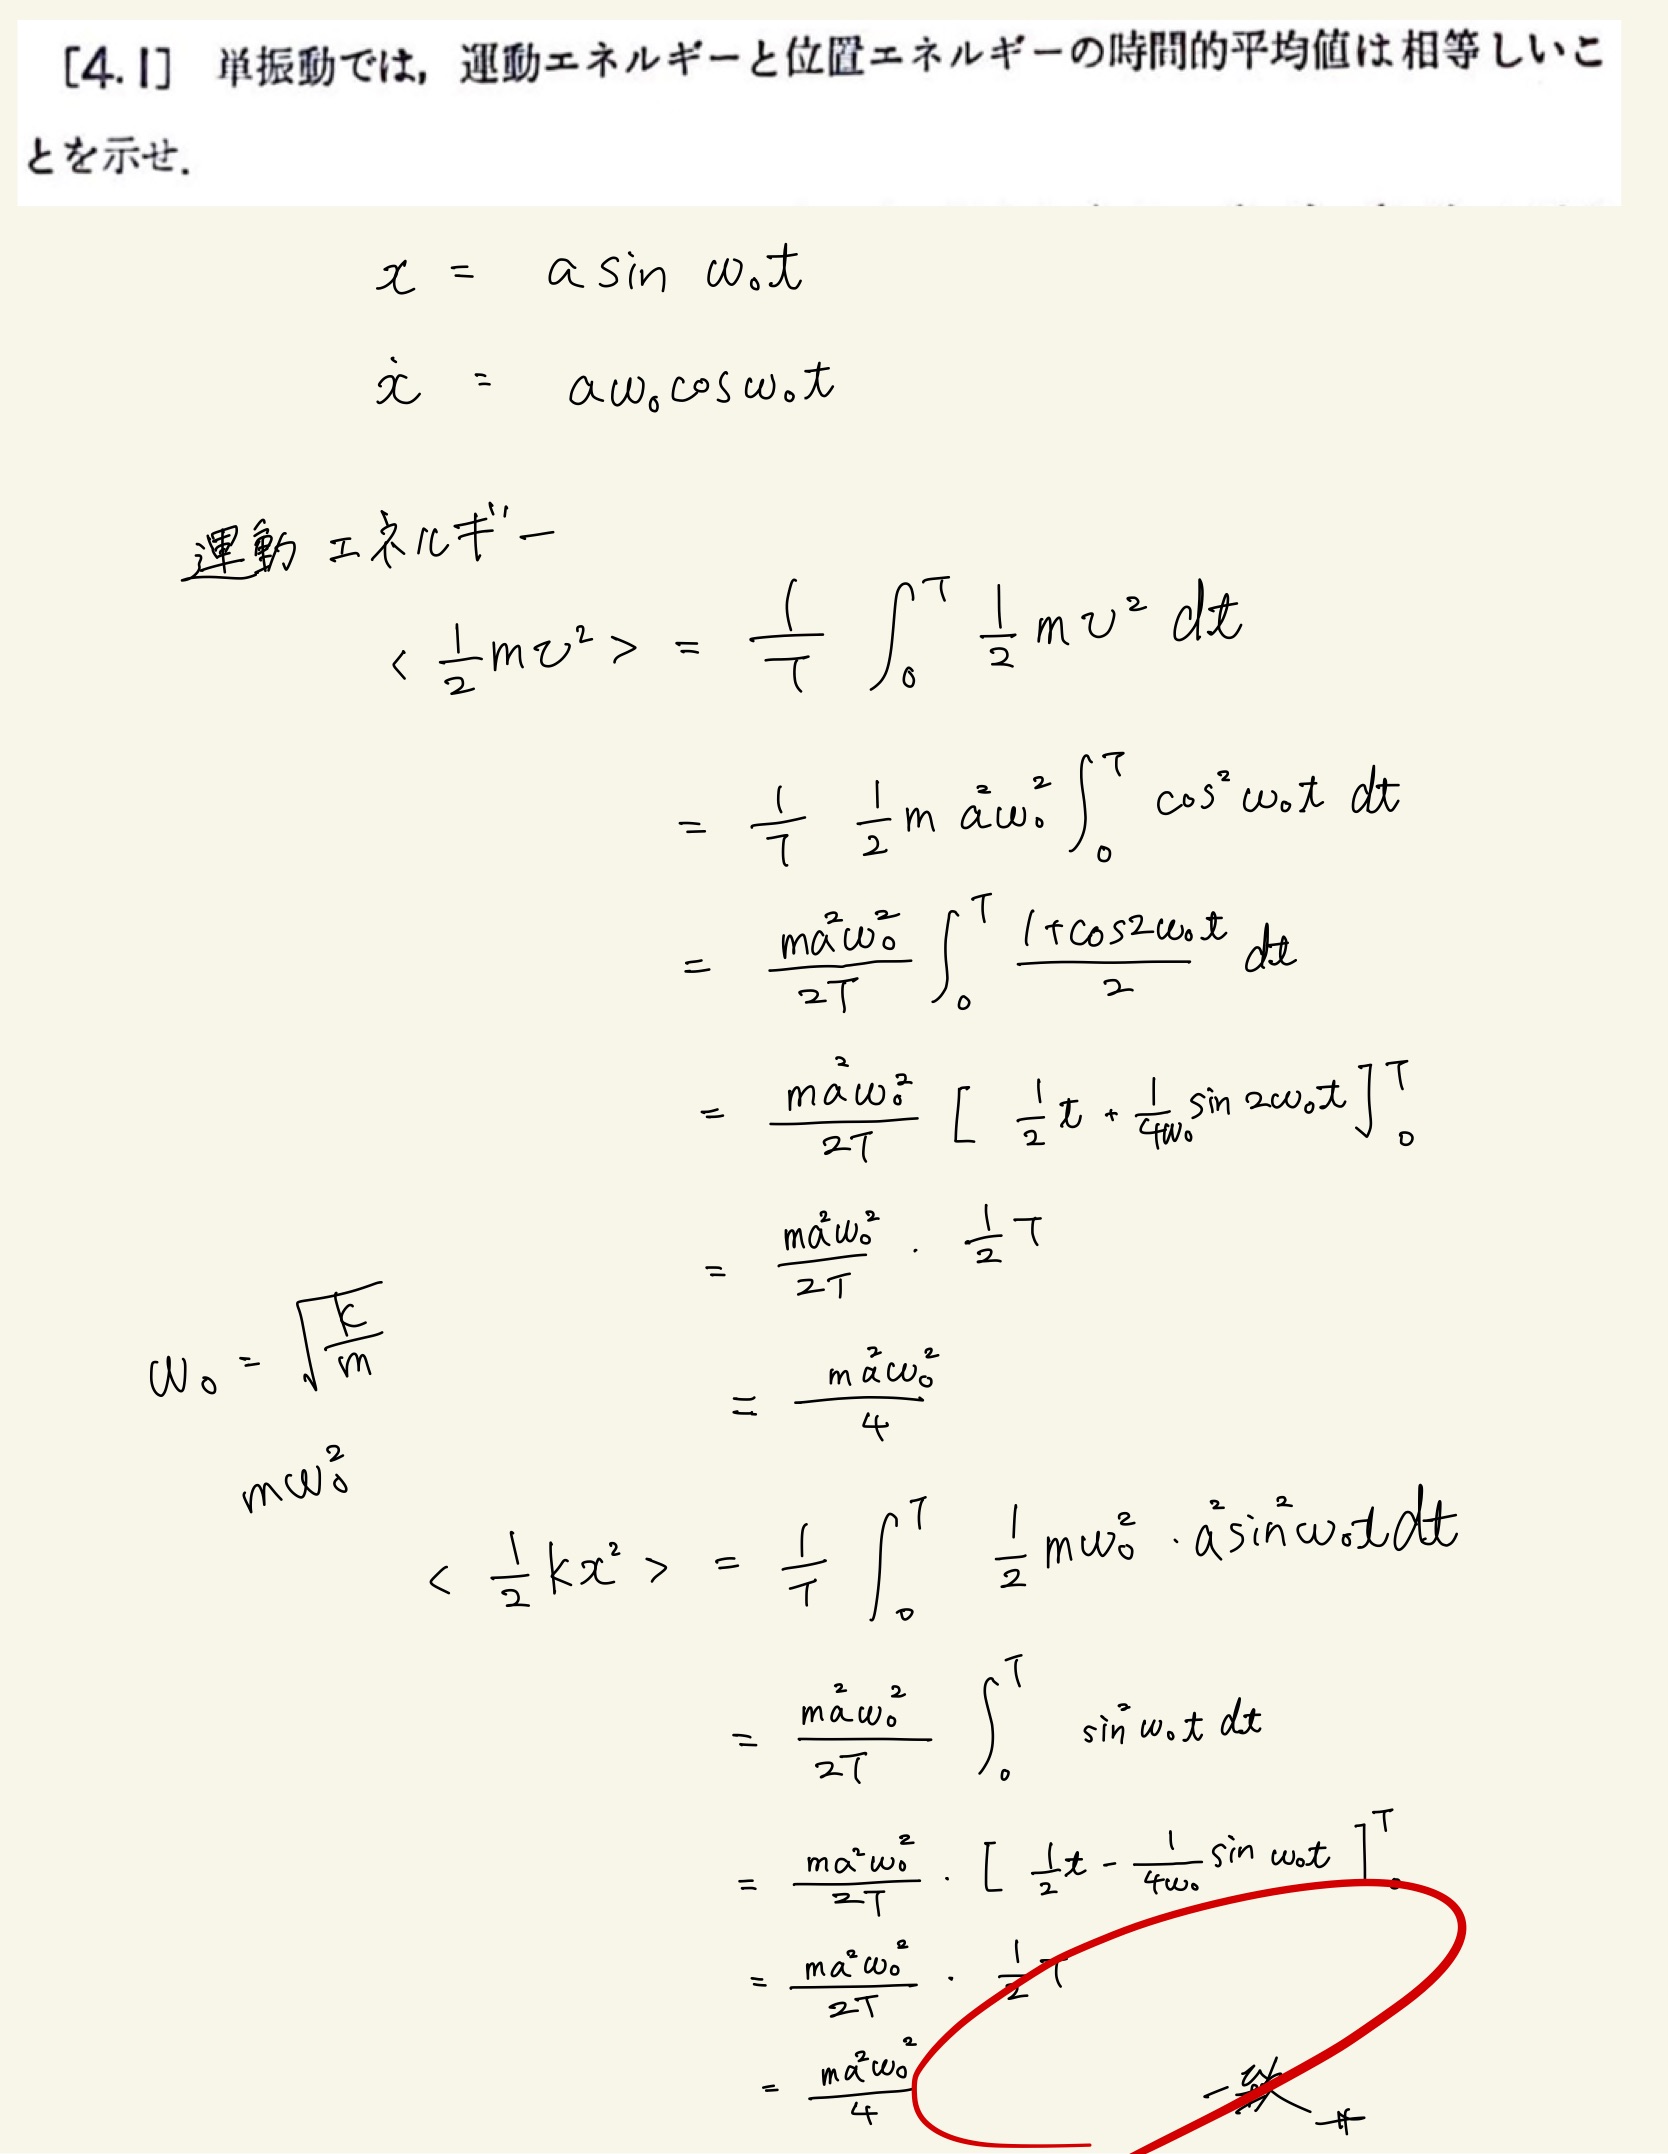 [4.1] 単振動では，運動エネルギーと位置エネルギーの時間的平均値は相等しいこ
とを示せ．
x = a sin ω₀t
ẋ = aω₀cosω₀t
運動エネルギー
< 1/2 mv² > = 1/T ∫₀ᵀ 1/2 mv² dt
= 1/T 1/2 m a²ω₀² ∫₀ᵀ cos²ω₀t dt
= ma²ω₀²/2T ∫₀ᵀ (1+cos2ω₀t)/2 dt
= ma²ω₀²/2T [ 1/2 t + 1/4ω₀ sin 2ω₀t ]₀ᵀ
= ma²ω₀²/2T · 1/2 T
ω₀ = √(k/m)
= ma²ω₀²/4
mω₀²
< 1/2 kx² > = 1/T ∫₀ᵀ 1/2 mω₀² · a²sin²ω₀t dt
= ma²ω₀²/2T ∫₀ᵀ sin²ω₀t dt
= ma²ω₀²/2T · [ 1/2 t - 1/4ω₀ sin ω₀t ]₀ᵀ
= ma²ω₀²/2T · 1/2 T
= ma²ω₀²/4
一致